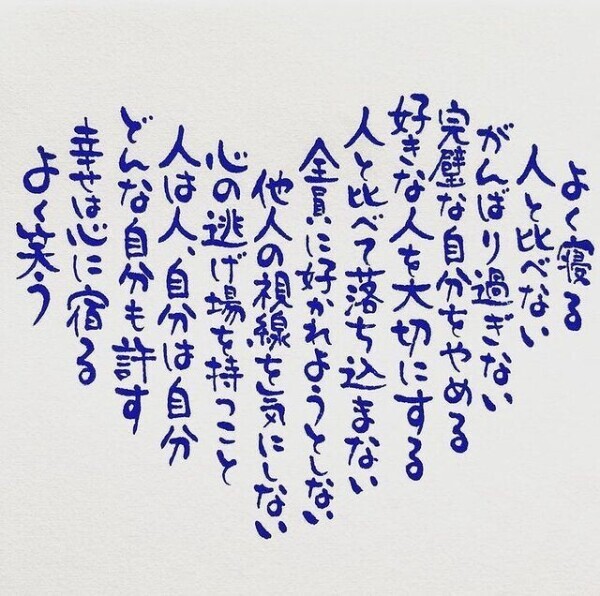 よく寝る
人と比べない
がんばり過ぎない
完璧な自分をやめる
好きな人を大切にする
人と比べて落ち込まない
全員に好かれようとしない
他人の視線を気にしない
心の逃げ場を持つこと
人は人、自分は自分
どんな自分も許す
幸せは心に宿る
よく笑う